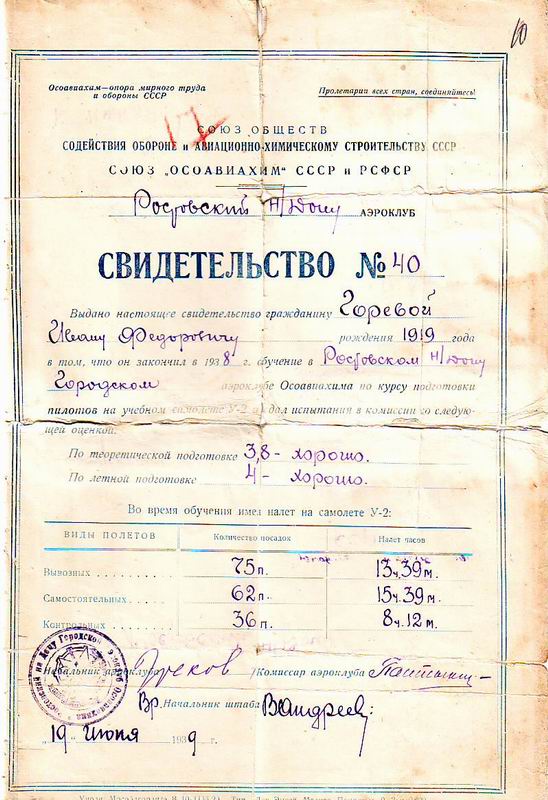 10
Осоавиахим—опора мирного труда
и обороны СССР
Пролетарии всех стран, соединяйтесь!
17
СОЮЗ ОБЩЕСТВ
СОДЕЙСТВИЯ ОБОРОНЕ и АВИАЦИОННО-ХИМИЧЕСКОМУ СТРОИТЕЛЬСТВУ СССР
СОЮЗ „ОСОАВИАХИМ“ СССР и РСФСР
Ростовский Н/Дону АЭРОКЛУБ
СВИДЕТЕЛЬСТВО № 40
Выдано настоящее свидетельство гражданину Горевой
Ивану Федоровичу рождения 1919 года
в том, что он закончил в 1938 г. обучение в Ростовском Н/Дону
Городском аэроклубе Осоавиахима по курсу подготовки
пилотов на учебном самолете У-2 и сдал испытания в комиссии со следую-
щей оценкой:
По теоретической подготовке 3,8 - хорошо.
По летной подготовке 4 - хорошо.
Во время обучения имел налет на самолете У-2:
ВИДЫ ПОЛЕТОВ Количество посадок Налет часов
Вывозных 75 п. 13 ч. 39 м.
Самостоятельных 62 п. 15 ч. 39 м.
Контрольных 36 п. 8 ч. 12 м.
Начальник аэроклуба /Комиссар аэроклуба
Вр. Начальник штаба ВАндреев
„19" Июня 1939 г.